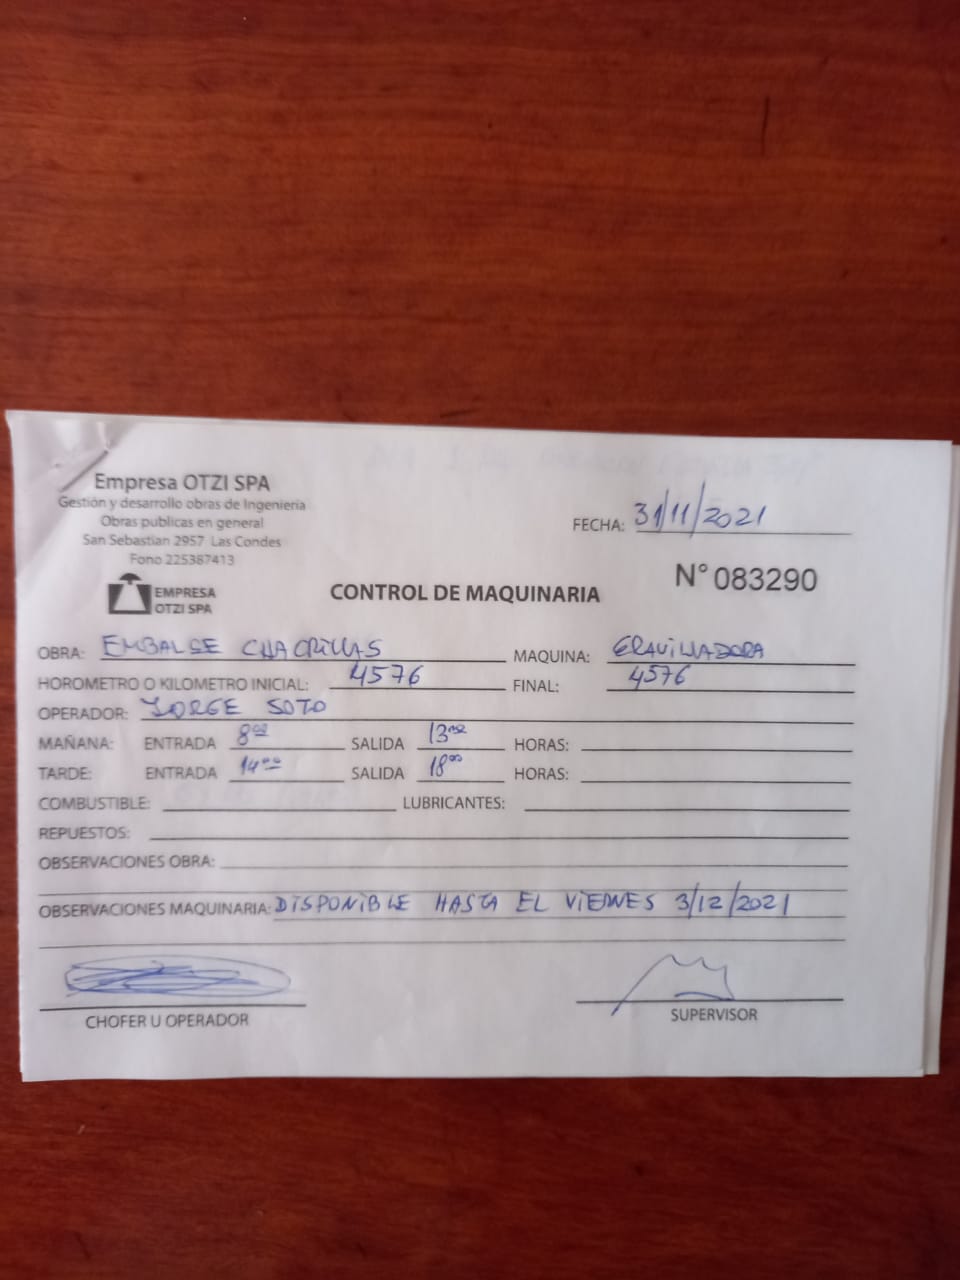 Empresa OTZI SPA
Gestión y desarrollo obras de Ingenieria
Obras publicas en general
San Sebastian 2957 Las Condes
Fono 225387413
EMPRESA
OTZI SPA
FECHA: 31/11/2021
CONTROL DE MAQUINARIA
N° 083290
OBRA: EMBALSE CHACRILLAS MAQUINA: GRAVILLADORA
HOROMETRO O KILOMETRO INICIAL: 4576 FINAL: 4576
OPERADOR: JORGE SOTO
MAÑANA: ENTRADA 8°° SALIDA 13°° HORAS:
TARDE: ENTRADA 14°° SALIDA 18°° HORAS:
COMBUSTIBLE: LUBRICANTES:
REPUESTOS:
OBSERVACIONES OBRA:
OBSERVACIONES MAQUINARIA: DISPONIBLE HASTA EL VIERNES 3/12/2021
CHOFER U OPERADOR SUPERVISOR